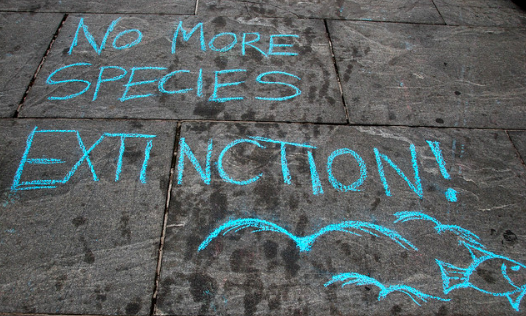 No More
Species
Extinction!